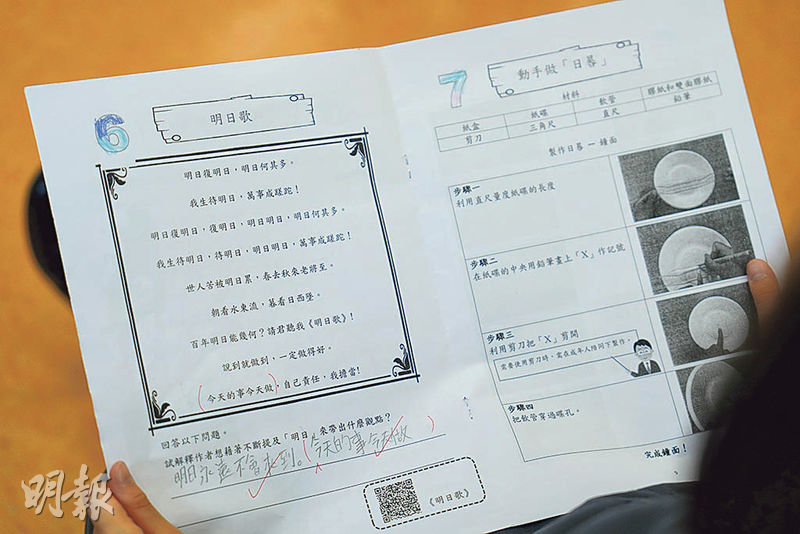 6
明日歌
明日復明日,明日何其多。
我生待明日,萬事成蹉跎!
明日復明日,復明日,明日明日,明日何其多。
我生待明日,待明日,明日明日,萬事成蹉跎!
世人苦被明日累,春去秋來老將至。
朝看水東流,暮看日西墜。
百年明日能幾何?請君聽我《明日歌》!
說到就做到,一定做得好。
(今天的事今天做),自己責任,我擔當!
回答以下問題。
試解釋作者想藉著不斷提及「明日」來帶出什麼觀點?
明日永遠不會來到。(今天的事今天做
《明日歌》
7
動手做「日晷」
材料
紙盒 紙碟 軟管 膠紙和雙面膠紙
剪刀 三角尺 直尺 鉛筆
製作日晷 — 鐘面
步驟一
利用直尺量度紙碟的長度
步驟二
在紙碟的中央用鉛筆畫上「X」作記號
步驟三
利用剪刀把「X」剪開
需要使用剪刀時,需在成年人陪同下製作。
步驟四
把軟管穿過碟孔。
完成鐘面!
明報